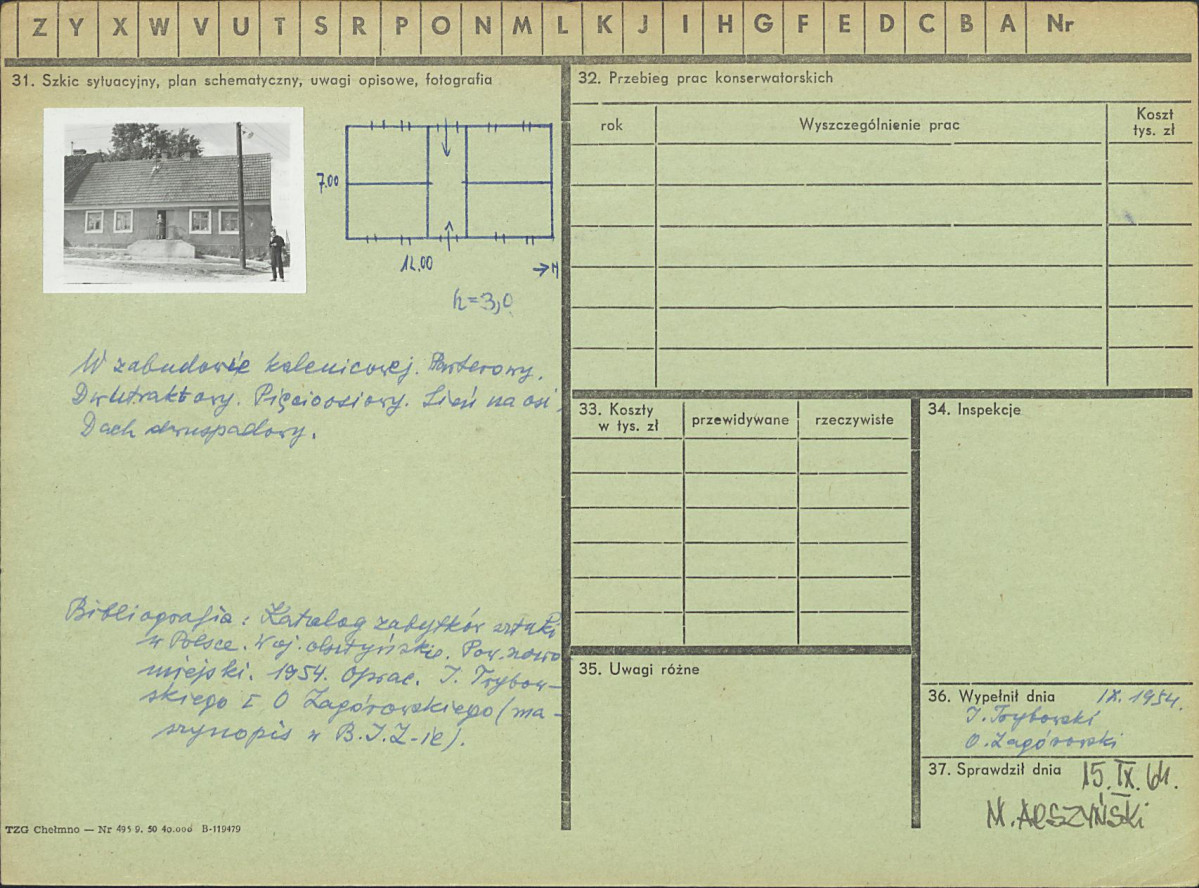 Z Y X W V U T S R P O N M L K J I H G F E D C B A Nr
31. Szkic sytuacyjny, plan schematyczny, uwagi opisowe, fotografia
7.00
12.00
h=3,0
W zabudowie kalenicowej. Parterowy.
Dwutraktowy. Pięcioosiowy. Sień na osi.
Dach dwuspadowy.
Bibliografia: Katalog zabytków sztuki
w Polsce. Woj. olsztyńskie. Pow. nowo
miejski. 1954. Oprac. J. Trybow-
skiego I O Zagórowskiego (ma-
szynopis w B.I.Z-ie).
TZG Chełmno — Nr 495 9. 50 40.000 B-119479
32. Przebieg prac konserwatorskich
rok Wyszczególnienie prac Koszt
tys. zł
33. Koszty
w tys. zł przewidywane rzeczywiste
34. Inspekcje
35. Uwagi różne
36. Wypełnił dnia IX. 1954.
J. Trybowski
O. Zagórowski
37. Sprawdził dnia 15. IX. 64.
M. ARSZYŃSKI